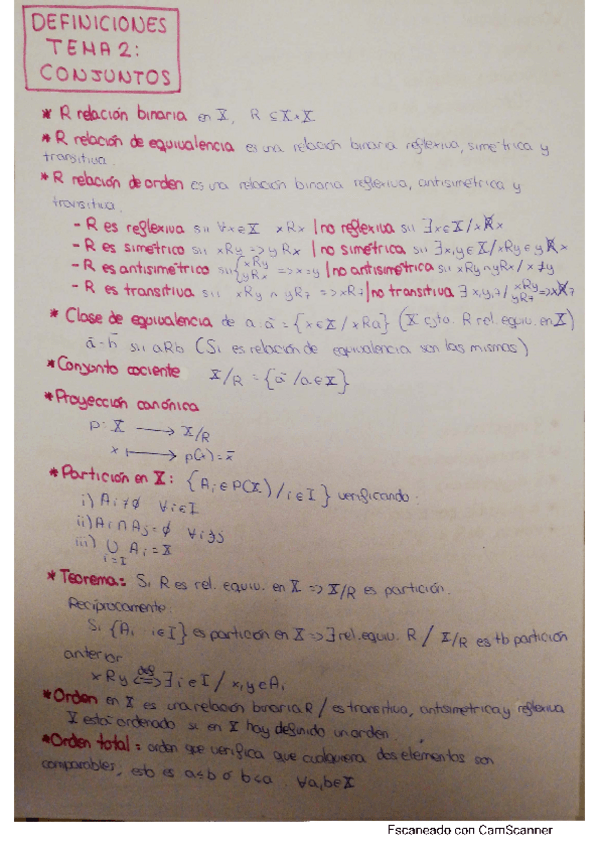 DEFINICIONES
TEMA 2:
CONJUNTOS
* R relación binaria en X, R ⊆ X×X
* R relación de equivalencia es una relación binaria reflexiva, simétrica y
transitiva.
* R relación de orden es una relación binaria reflexiva, antisimétrica y
transitiva.
- R es reflexiva sii ∀x∈X xRx / no reflexiva sii ∃x∈X / xR̸x
- R es simétrica sii xRy => yRx / no simétrica sii ∃x,y∈X / xRy e yR̸x
- R es antisimétrica sii {xRy yRx => x=y / no antisimétrica sii xRy ∧ yRx / x≠y
- R es transitiva sii xRy ∧ yRz => xRz / no transitiva ∃x,y,z / xRy yRz => xR̸z
* Clase de equivalencia de a: ā = {x∈X / xRa} (X cjto. R rel. equiv. en X)
ā = b̄ sii aRb (Si es relación de equivalencia son las mismas)
* Conjunto cociente X/R = {ā / a∈X}
* Proyección canónica
p: X → X/R
x ↦ p(x) = x̄
* Partición en X: {Ai∈P(X) / i∈I} verificando:
i) Ai ≠ ∅ ∀i∈I
ii) Ai ∩ Aj = ∅ ∀i≠j
iii) ∪ Ai = X
i=I
* Teorema: Si R es rel. equiv. en X => X/R es partición.
Recíprocamente:
Si {Ai i∈I} es partición en X => ∃ rel. equiv. R / X/R es tb partición
anterior
xRy <=> def ∃i∈I / x,y∈Ai
* Orden en X es una relación binaria R / es transitiva, antisimétrica y reflexiva
X está ordenado si en X hay definido un orden.
* Orden total: orden que verifica que cualquiera dos elementos son
comparables, esto es a≤b ó b≤a ∀a,b∈X
Escaneado con CamScanner